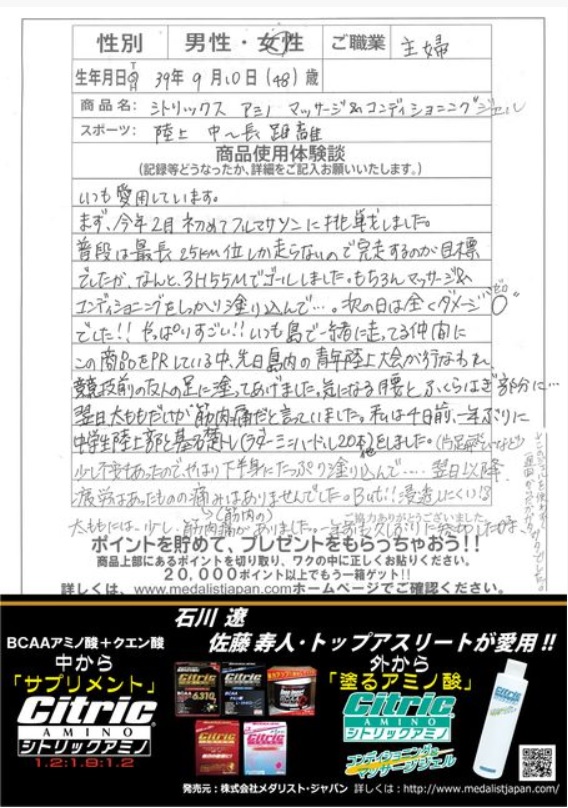 性別 男性・女性 ご職業 主婦
生年月日 TSH 39年 9月 10日 (48) 歳
商品名: シトリックス アミノ マッサージ&コンディショニングジェル
スポーツ: 陸上 中〜長 距離
商品使用体験談
(記録等どうなったか、詳細をご記入お願いいたします。)
いつも愛用しています。
まず、今年2月 初めてフルマラソンに挑戦しました。
普段は最長25km位しか走らないので完走するのが目標
でしたが、なんと、3H55Mでゴールしました。もちろんマッサージ&
コンディショニングをしっかり塗り込んで…。次の日は全くダメージ"0"ゼロ
でした!! やっぱりすごい!! いつも島で一緒に走ってる仲間に
この商品をPRしている中、先日島内の青年陸上大会が行なわれ
競技前の友人の足に塗ってあげました。気になる腰とふくらはぎ部分に…
翌日太ももだけが筋肉痛だと言っていました。私は4日前、一年ぶりに
中学生陸上部と基礎トレ(ラダー・ミニハードル20本)をしました。
少し不安もあったので、やはり下半身にたっぷり塗り込んで…. 翌日以降
疲労はあったものの痛みはありませんでした。But!! 浸透しにくい
(筋肉の) ご協力ありがとうございました。
太ももには、少し筋肉痛がありました。
ポイントを貯めて、プレゼントをもらっちゃおう!!
商品上部にあるポイントを切り取り、ワクの中に正しくお貼りください。
20,000ポイント以上でもう一箱ゲット!!
詳しくは、www.medalistjapan.comホームページでご確認ください。
石川 遼
佐藤 寿人・トップアスリートが愛用!!
BCAAアミノ酸+クエン酸
中から
「サプリメント」
Citric
AMINO
シトリックアミノ
1.2:1.9:1.2
外から
「塗るアミノ酸」
Citric
AMINO
シトリックアミノ
コンディショニング&
マッサージジェル
発売元:株式会社メダリスト・ジャパン 詳しくは:http://www.medalistjapan.com/